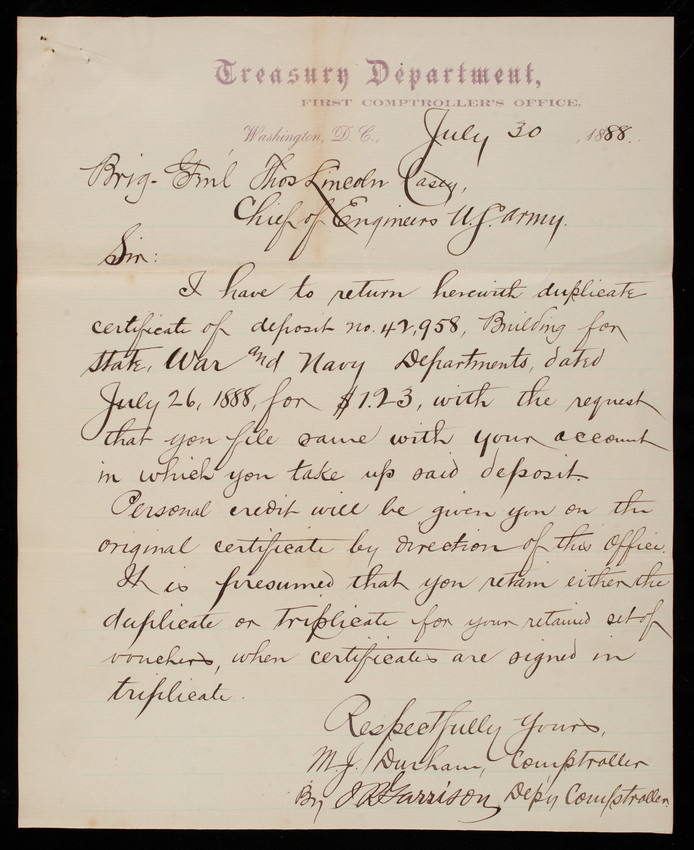 Treasury Department,
FIRST COMPTROLLER'S OFFICE,
Washington, D.C., July 30, 1888.
Brig-Gen'l Thos Lincoln Casey,
Chief of Engineers U.S. Army.
Sir:
I have to return herewith duplicate
certificate of deposit no. 42,958, Building for
State, War and Navy Departments, dated
July 26, 1888, for $1.23, with the request
that you file same with your account
in which you take up said deposit.
Personal credit will be given you on the
original certificate by direction of this Office.
It is presumed that you retain either the
duplicate or triplicate for your retained set of
vouchers, when certificates are signed in
triplicate.
Respectfully yours,
M.J. Durham, Comptroller
By J R Garrison, Depy Comptroller.